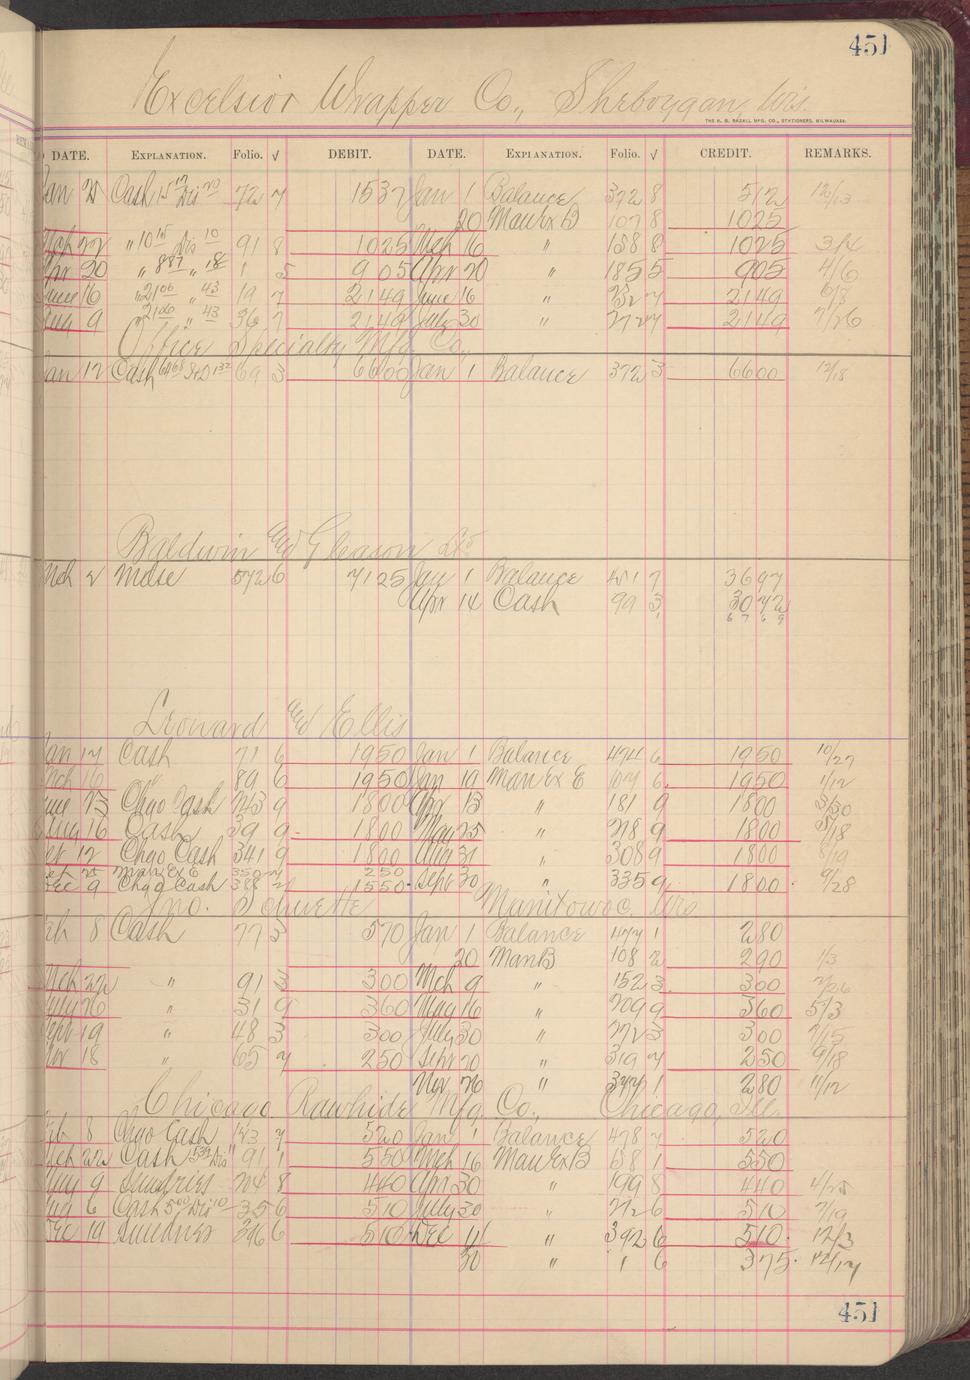 451
Excelsior Wrapper Co., Sheboygan, Wis.
THE H. G. RAZALL MFG. CO., STATIONERS, MILWAUKEE.
DATE. EXPLANATION. Folio. √ DEBIT. DATE. EXPLANATION. Folio. √ CREDIT. REMARKS.
Cash 1537 Jan 1 Balance 372 8 512 12/13
20 Man Ex B 107 8 1025
Mch 22 " 10 15 Dis 10 91 8 1025 Mch 16 " 158 8 1025
Apr 20 " 8 87 " 18 1 5 905 Apr 20 " 185 5 905 4/6
June 16 " 21 06 " 43 19 7 2149 June 16 " 2149
Aug 9 " 21 06 " 43 36 7 2149 July 30 " 2149 7/26
Office Specialty Mfg. Co.,
Jan 12 Cash 69 3 6600 Jan 1 Balance 372 3 6600 12/18
Baldwin and Gleason
Mch 2 Mdse 572 6 7125 Jan 1 Balance 451 7 3697
Apr 14 Cash 99 3 3072
6 7 6 9
Leonard and Ellis
Jan 17 Cash 71 6 1950 Jan 1 Balance 474 6 1950 10/27
Mch 16 " 89 6 1950 Jan 19 Man Ex E 107 6 1950 1/12
Chgo Cash 243 9 1800 Apr 13 " 181 9 1800 3/30
Aug 16 Cash 39 9 1800 May 25 " 218 9 1800 5/18
Oct 12 Chgo Cash 341 9 1800 Aug 31 " 308 9 1800 8/19
Oct 25 Man Ex E 350 250
Dec 9 Chgo Cash 388 1550 Sept 30 " 335 9 1800 9/28
Jno. Schuette Manitowoc, Wis
Feb 8 Cash 77 3 570 Jan 1 Balance 477 1 280
20 Man B 108 2 290 1/3
Mch 22 " 91 3 300 Mch 9 " 152 3 300 2/26
July 26 " 31 9 360 May 16 " 209 9 360 5/3
" 48 3 300 July 30 " 272 3 300 7/15
Nov 18 " 65 7 250 Sept 20 " 319 7 250 9/18
Nov 26 " 347 1 280 11/12
Chicago Rawhide Mfg. Co., Chicago, Ill.
Feb 8 Chgo Cash 123 7 520 Jan 1 Balance 478 7 520
Mch 22 Cash 91 1 550 Mch 16 Man Ex B 158 1 550
9 Sundries 204 8 440 Apr 30 " 199 8 440 4/25
Aug 6 Cash 5 00 Dis 10 35 6 510 July 30 " 272 6 510 7/19
Dec 19 Sundries 396 6 510 Dec 11 " 392 6 510 12/3
30 " 1 6 375 12/17
451